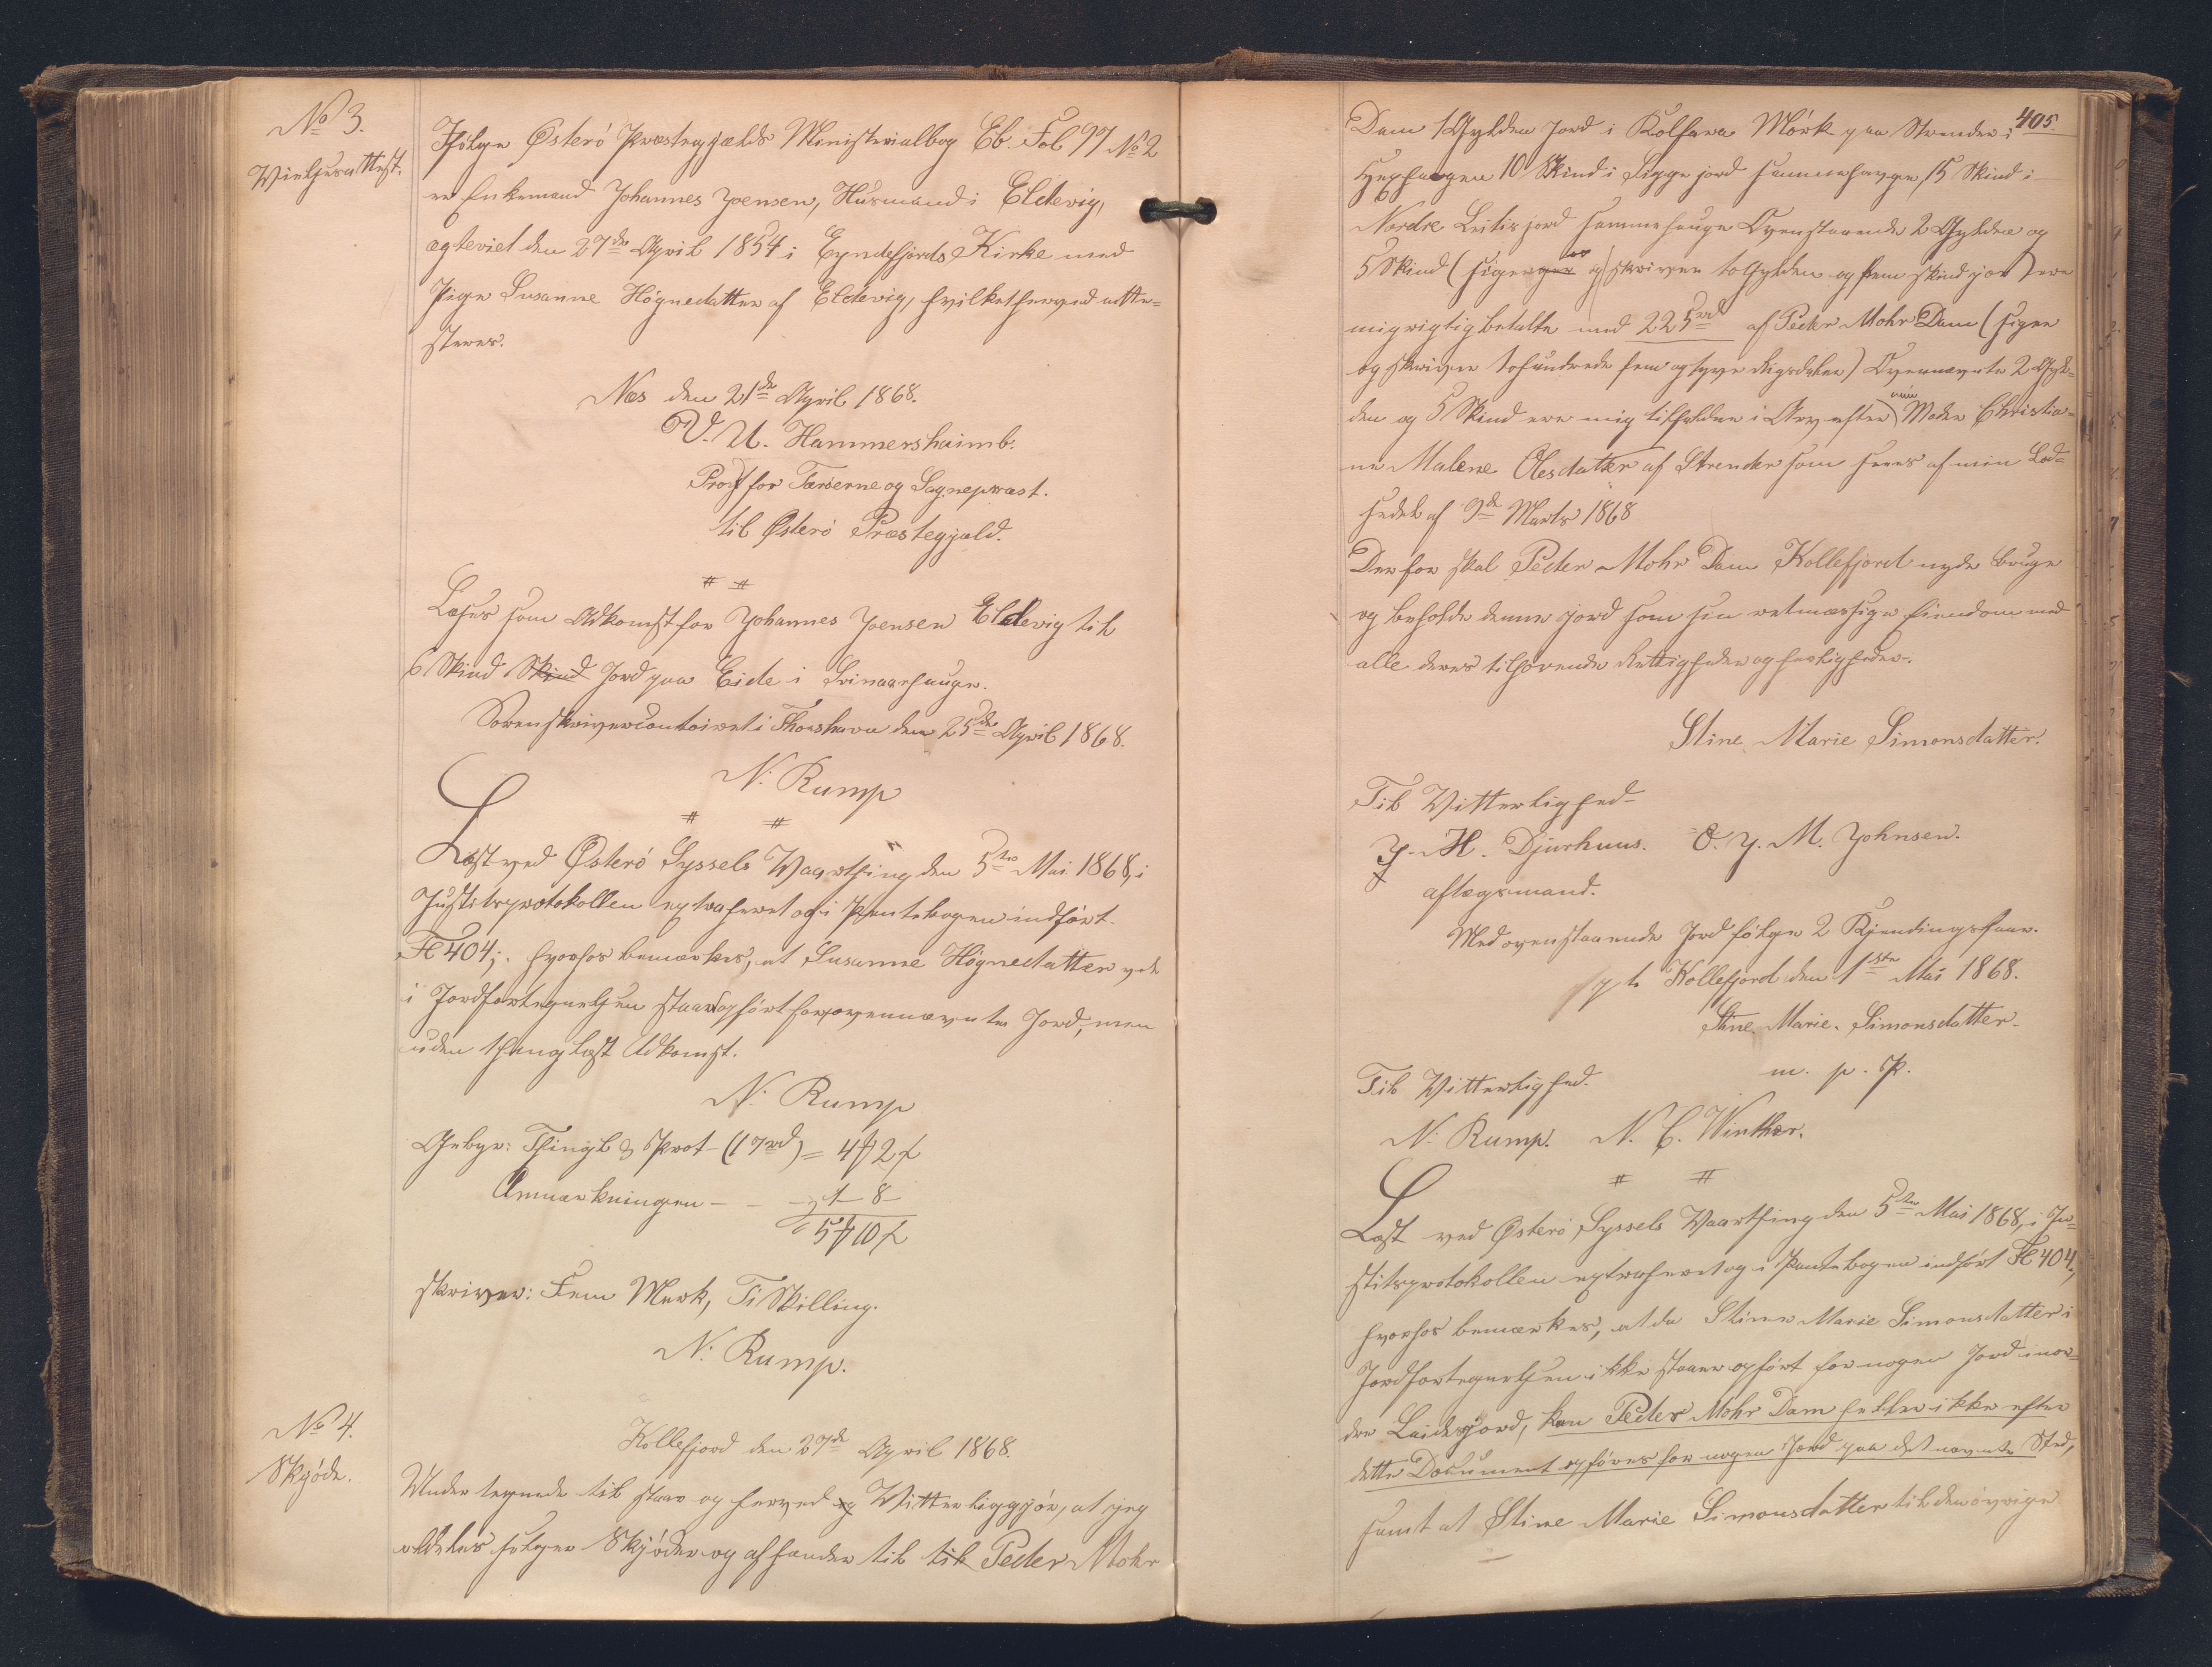 No 3.
Vielsesattest.
Ifølge Østerö Præstegjælds Ministerialbog Eb. Fol 97 No 2
er Enkemand Johannes Joensen, Husmand i Eldevig,
ægteviet den 27de April 1854 i Eyndefjords Kirke med
Pige Susanne Högnedatter af Eldevig, hvilket herved atte-
steres.
Næs den 21de April 1868.
V. U. Hammershaimb.
Provst for Færöerne og Sognepræst.
til Østerö Præstegjæld.
# #
Læses som Adkomst for Johannes Joensen Eldevig til
6 Skind Skind Jord paa Eide i
Sorenskrivercontoiret i Thorshavn den 25de April 1868.
N. Rump
# #
Læst ved Østerö Syssels Vaarthing den 5te Mai 1868, i
Justitsprotokollen extraheret og i Pantebogen indført
Fl 404; hvorhos bemærkes, at Susanne Högnedatter
i Jordfortegnelsen staar opført for ovennævnte Jord, men
uden thinglæst Adkomst.
N. Rump
Gebyr: Thingl & Prot (17rd) = 4 ℳ 2 ß
Anmærkningen - - 1 - 8 -
5 ℳ 10 ß
skriver: Fem Mark, Ti Skilling.
N. Rump.
No 4.
Skjöde.
Kollefjord den 27de April 1868.
Undertegnede tilstaar og herved og Vitterliggjør, at jeg
aldeles sælger Skjöder og afhænder til til Peder Mohr
405.
Dam 1 Gylden Jord i Kolfara Mörk paa Strender i
10 Skind i Siggejord sammehauge, 15 Skind i
Nordre Leitisjord sammehauge Ovenstaaende 2 Gylden og
5 Skind (siger og skriver to Gylden og fem skind jor) ere
mig rigtig betalte med 225rd af Peder Mohr Dam (siger
og skriver tohundrede fem og tyve Rigsdaler) Ovennævnte 2 Gyl-
den og 5 Skind ere mig tilfaldne i Arv efter min Moder Christia-
ne Malene Olesdatter af Strender som sees af min Lod-
sedel af 9de Marts 1868
Derfor skal Peder Mohr Dam Kollefjord nyde bruge
og beholde denne jord som sin retmæssige Eiendom med
alle deres tilhørende Rettigheder og herligheder.
Stine Marie Simonsdatter.
Til Vitterlighed
J. H. Djurhuus. O. J. M. Johnsen.
aftægsmand.
Med ovenstaaende Jord følger 2 Kjendingsfaar.
p t Kollefjord den 1ste Mai 1868.
Stine Marie Simonsdatter
m. p. P.
Til Vitterlighed.
N. Rump. N. C. Winther.
# #
Læst ved Østerö Syssels Vaarthing den 5te Mai 1868, i Ju-
stitsprotokollen extraheret og i Pantebogen indført Fl 404,
hvorhos bemærkes, at da Stine Marie Simonsdatter i
Jordfortegnelsen ikke staaer opført for nogen Jord i nor-
dre Leidisjord, kan Peder Mohr Dam heller ikke efter
dette Document opføres for nogen Jord paa det nævnte Sted,
samt at Stine Marie Simonsdatter til den øvrige